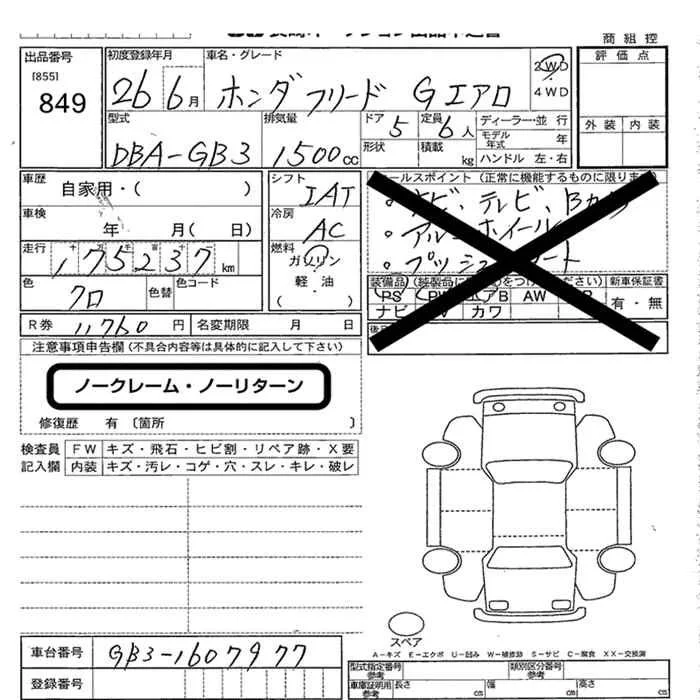 商組控
出品番号
[855]
849
初度登録年月
26 6月
車名・グレード
ホンダ フリード Gエアロ
2WD
4WD
評価点
外装 内装
型式
DBA-GB3
排気量
1500cc
ドア 5
形状
定員 6人
積載 kg
ディーラー・並行
モデル年式 年
ハンドル 左・右
車歴
自家用・( )
車検
年 月( 日)
走行 十 万 千 百 十
175237 km
色
クロ
色替
色コード
R券 11760 円
名変期限 月 日
シフト
IAT
冷房
AC
燃料
ガソリン
軽油
( )
セールスポイント (正常に機能するものに限ります)
ナビ、テレビ、Bカメラ
・アルミホイール
・プッシュスタート
新車保証書
有・無
PS PW エアB AW
ナビ TV カワ
注意事項申告欄(不具合内容等は具体的に記入して下さい)
ノークレーム・ノーリターン
修復歴 有 〔箇所 〕
検査員記入欄
FW キズ・飛石・ヒビ割・リペア跡・X要
内装 キズ・汚レ・コゲ・穴・スレ・キレ・破レ
スペア
A-キズ E-エクボ U-凹み W-補修跡 S-サビ C-腐食 XX-交換済
車台番号 GB3-1607977
登録番号
型式指定番号 参考
類別区分番号 参考
車庫証明用 参考 長さ cm 幅 cm 高さ cm